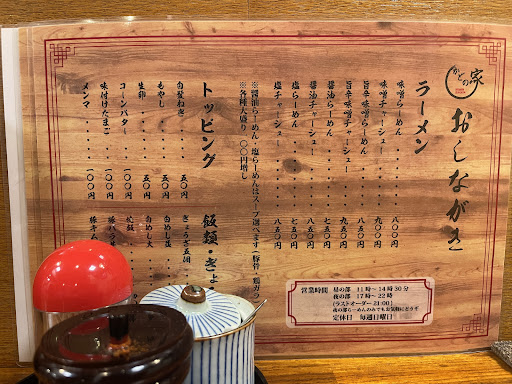 かどの家
おしながき
ラーメン
味噌らーめん・・・・・八〇〇
味噌チャーシュー・・・・九〇〇
旨辛味噌らーめん・・・・八五〇
旨辛味噌チャーシュー・・・九五〇
醤油らーめん・・・・・七五〇
醤油チャーシュー・・・・八五〇
塩らーめん・・・・・・七五〇
塩チャーシュー・・・・・八五〇
※醤油らーめん・塩らーめんはスープ選べます(豚骨・鶏ガラ)
※各種大盛り一〇〇円増し
トッピング
白髪ねぎ・・・・・五〇円
もやし・・・・・・五〇円
生卵・・・・・・・五〇円
コーンバター・・・一〇〇円
味付けたまご・・・一〇〇円
メンマ・・・・・・一〇〇円
飯類
ぎょうざ五個
白めし並
白めし大
営業時間 昼の部 11時〜14時30分
夜の部 17時〜22時
(ラストオーダー 21:00)
夜の部らーめんのみでもお気軽にどうぞ
定休日 毎週日曜日